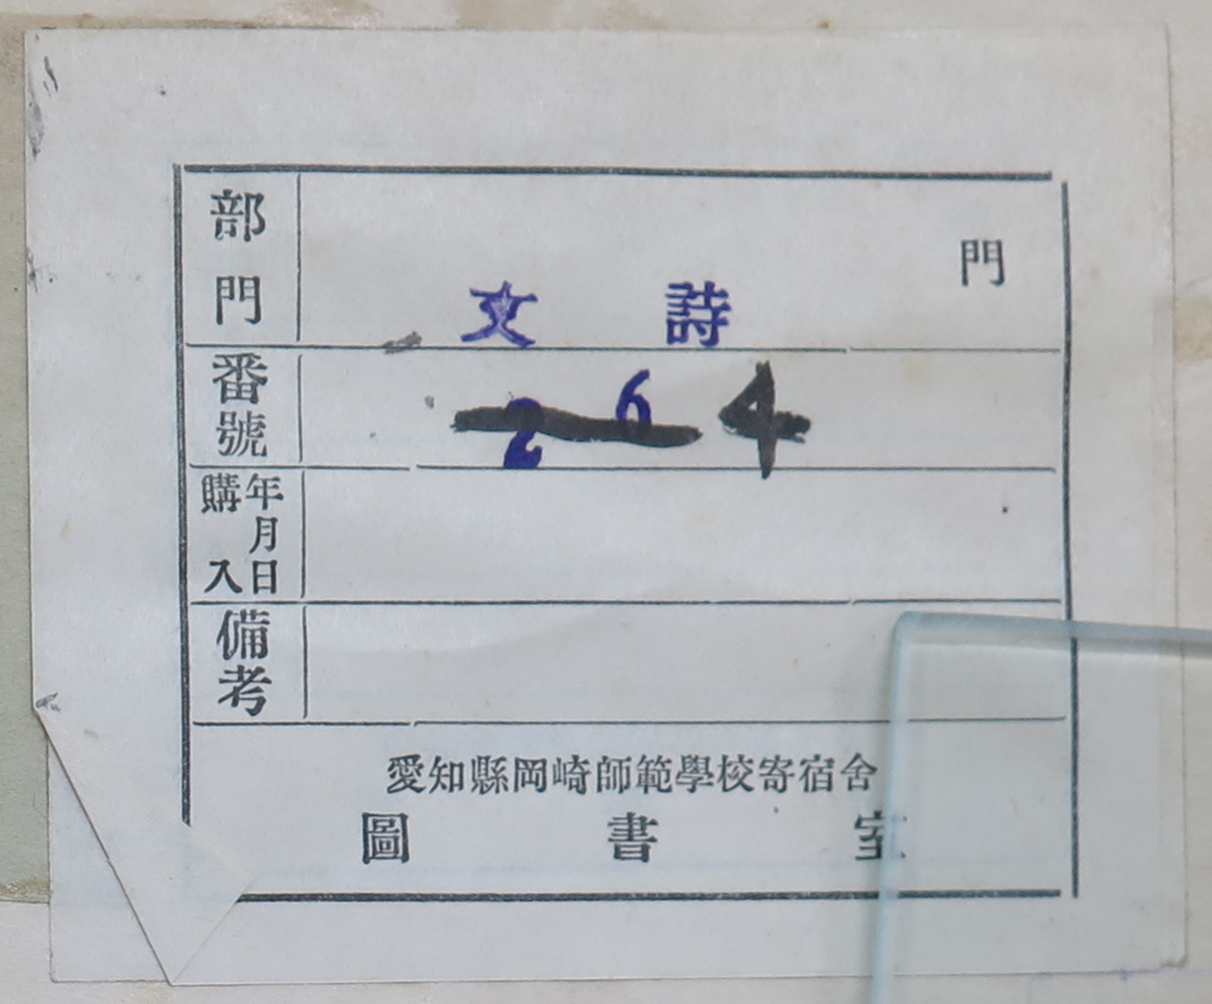 部門 文 詩 門
番號 264
購入年月日
備考
愛知縣岡崎師範學校寄宿舍
圖書室